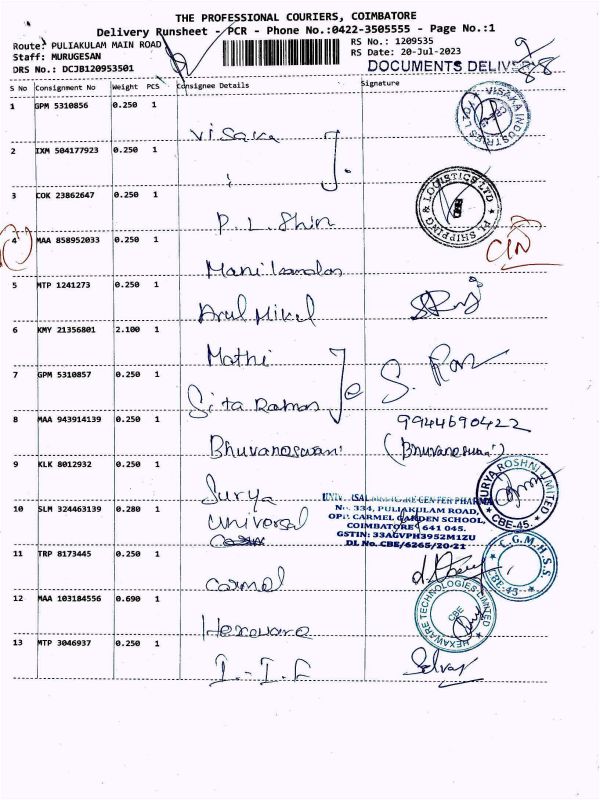 THE PROFESSIONAL COURIERS, COIMBATORE
Delivery Runsheet - PCR - Phone No.:0422-3505555 - Page No.:1
Route: PULIAKULAM MAIN ROAD RS No.: 1209535
Staff: MURUGESAN RS Date: 20-Jul-2023
DRS No.: DCJB120953501 DOCUMENTS DELIVERY
S No Consignment No Weight PCS Consignee Details Signature
1 GPM 5310856 0.250 1
Visaka
VISAKA INDUSTRIES
2 IXM 504177923 0.250 1
3 COK 23862647 0.250 1
P.L. Shin
SHIPPING & LOGISTICS LTD
4 MAA 858952033 0.250 1
Manikandan
5 MTP 1241273 0.250 1
Arul Mikel
6 KMY 21356801 2.100 1
Mathi
7 GPM 5310857 0.250 1
Sita Raman
8 MAA 943914139 0.250 1
9944690422
Bhuvaneswari (Bhuvaneswari)
9 KLK 8012932 0.250 1
Surya
SURYA ROSHNI LIMITED
CBE-45.
10 SLM 324463139 0.280 1
Universal
No. 334, PULIAKULAM ROAD,
OPP. CARMEL GARDEN SCHOOL,
COIMBATORE 641 045.
GSTIN: 33AGVPH3952M1ZU
DL No. CBE/6265/20-21
11 TRP 8173445 0.250 1
Carmel
C.G.M.H.S.S.
CBE-45
12 MAA 103184556 0.690 1
Hexaware
HEXAWARE TECHNOLOGIES LIMITED
CBE
13 MTP 3046937 0.250 1
I.I.F
Selvaj